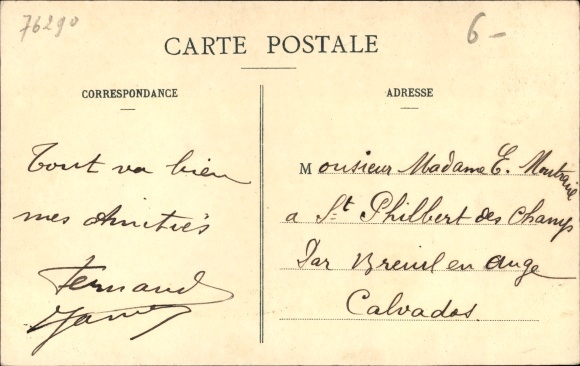 76290
6-
CARTE POSTALE
CORRESPONDANCE
ADRESSE
Tout va bien
mes Amitiés
Fernand
Monsieur Madame E.
a St Philbert des Champs
Par Breuil en auge
Calvados.